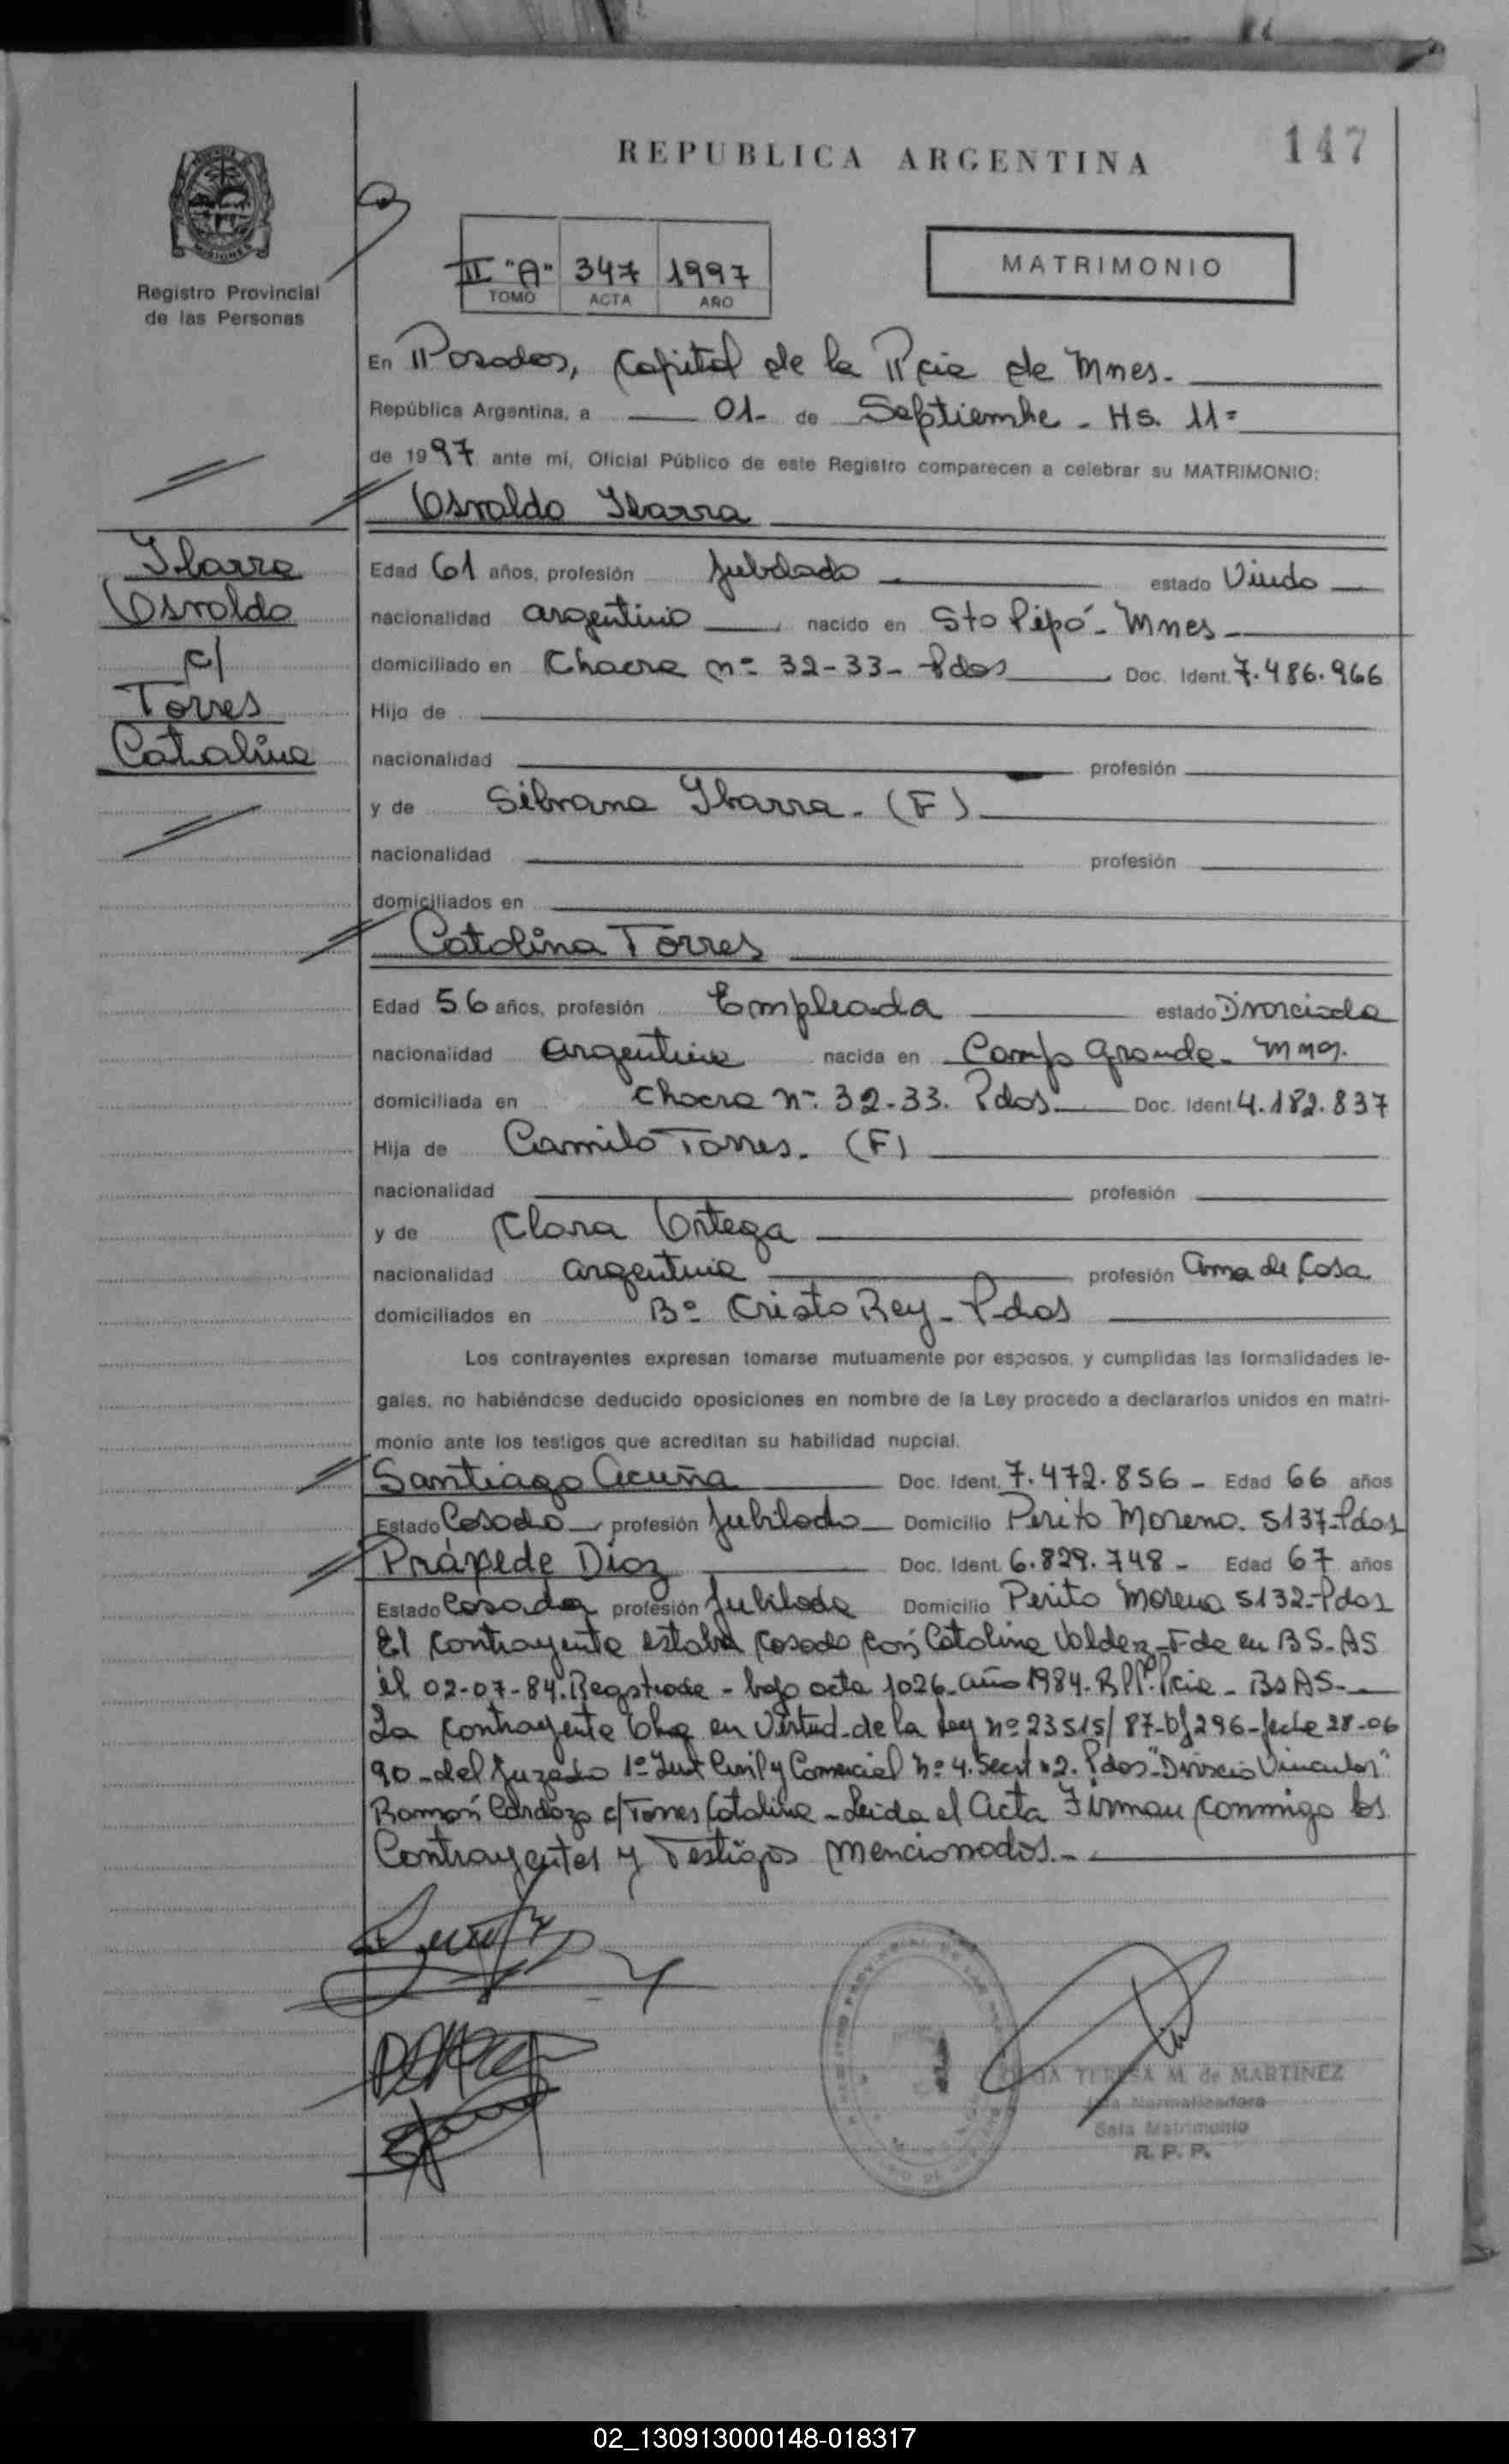 REPUBLICA ARGENTINA
147
Registro Provincial
de las Personas
II "A" 347 1997
TOMO ACTA AÑO
MATRIMONIO
En Posadas, Capital de la Pcia de Mnes.
República Argentina, a 01- de Septiembre - Hs. 11=
de 1997 ante mí, Oficial Público de este Registro comparecen a celebrar su MATRIMONIO:
Osvaldo Ibarra
Ibarra
Osvaldo
c/
Torres
Catalina
Edad 61 años, profesión Jubilado estado Viudo
nacionalidad argentino nacido en Sto Pipó - Mnes
domiciliado en Chacra nº 32-33- Pdas Doc. Ident. 7.486.966
Hijo de
nacionalidad profesión
y de Silvana Ibarra. (F)
nacionalidad profesión
domiciliados en
Catalina Torres
Edad 56 años, profesión Empleada estado Divorciada
nacionalidad argentina nacida en Campo Grande - Mnes.
domiciliada en Chacra nº 32-33. Pdas Doc. Ident. 4.182.837
Hija de Camilo Torres. (F)
nacionalidad profesión
y de Clara Ortega
nacionalidad argentina profesión Ama de Casa
domiciliados en Bº Cristo Rey - Pdas
Los contrayentes expresan tomarse mutuamente por esposos, y cumplidas las formalidades le-
gales, no habiéndose deducido oposiciones en nombre de la Ley procedo a declararlos unidos en matri-
monio ante los testigos que acreditan su habilidad nupcial.
Santiago Acuña Doc. Ident. 7.472.856 - Edad 66 años
Estado Casado profesión Jubilado Domicilio Perito Moreno. 5137-Pdas
Práxede Díaz Doc. Ident. 6.829.748 - Edad 67 años
Estado Casada profesión Jubilada Domicilio Perito Moreno 5132-Pdas
El contrayente estaba casado con Catalina Valdez - F. de en BS-AS
el 02-07-84. Registrada - bajo acta 1026 - año 1984 - R.PP. Pcia - Bs AS -
La contrayente en Virtud de la Ley nº 23515/87 - of 296 - fecha 28-06
90 - del Juzgado 1º Inst Civil y Comercial nº 4. Secret nº 2. Pdas "Divorcio Vincular"
Ramón Cardozo c/ Torres Catalina - Leida el Acta Firman conmigo los
Contrayentes y Testigos mencionados. -
TERESA M. de MARTINEZ
Normalizadora
Sala Matrimonio
R. P. P.
02_130913000148-018317